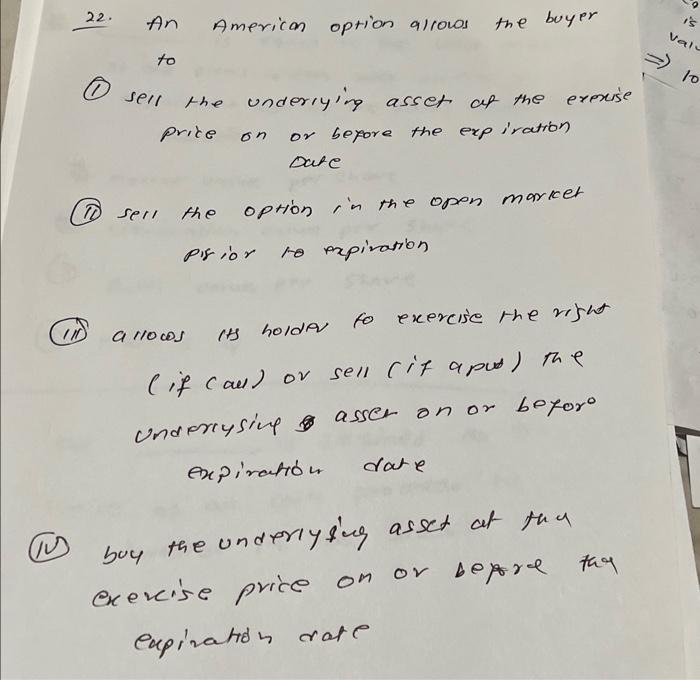 22. An American option allows the buyer
to
(i) sell the underlying asset at the exercise
price on or before the expiration
Date
(ii) sell the option in the open market
prior to expiration
(iii) allows its holder to exercise the right
(if call) or sell (if a put) the
underlysing asset on or before
expiration date
(iv) buy the underlying asset at the
exercise price on or before the
expiration date
is
valu
⇒ 10